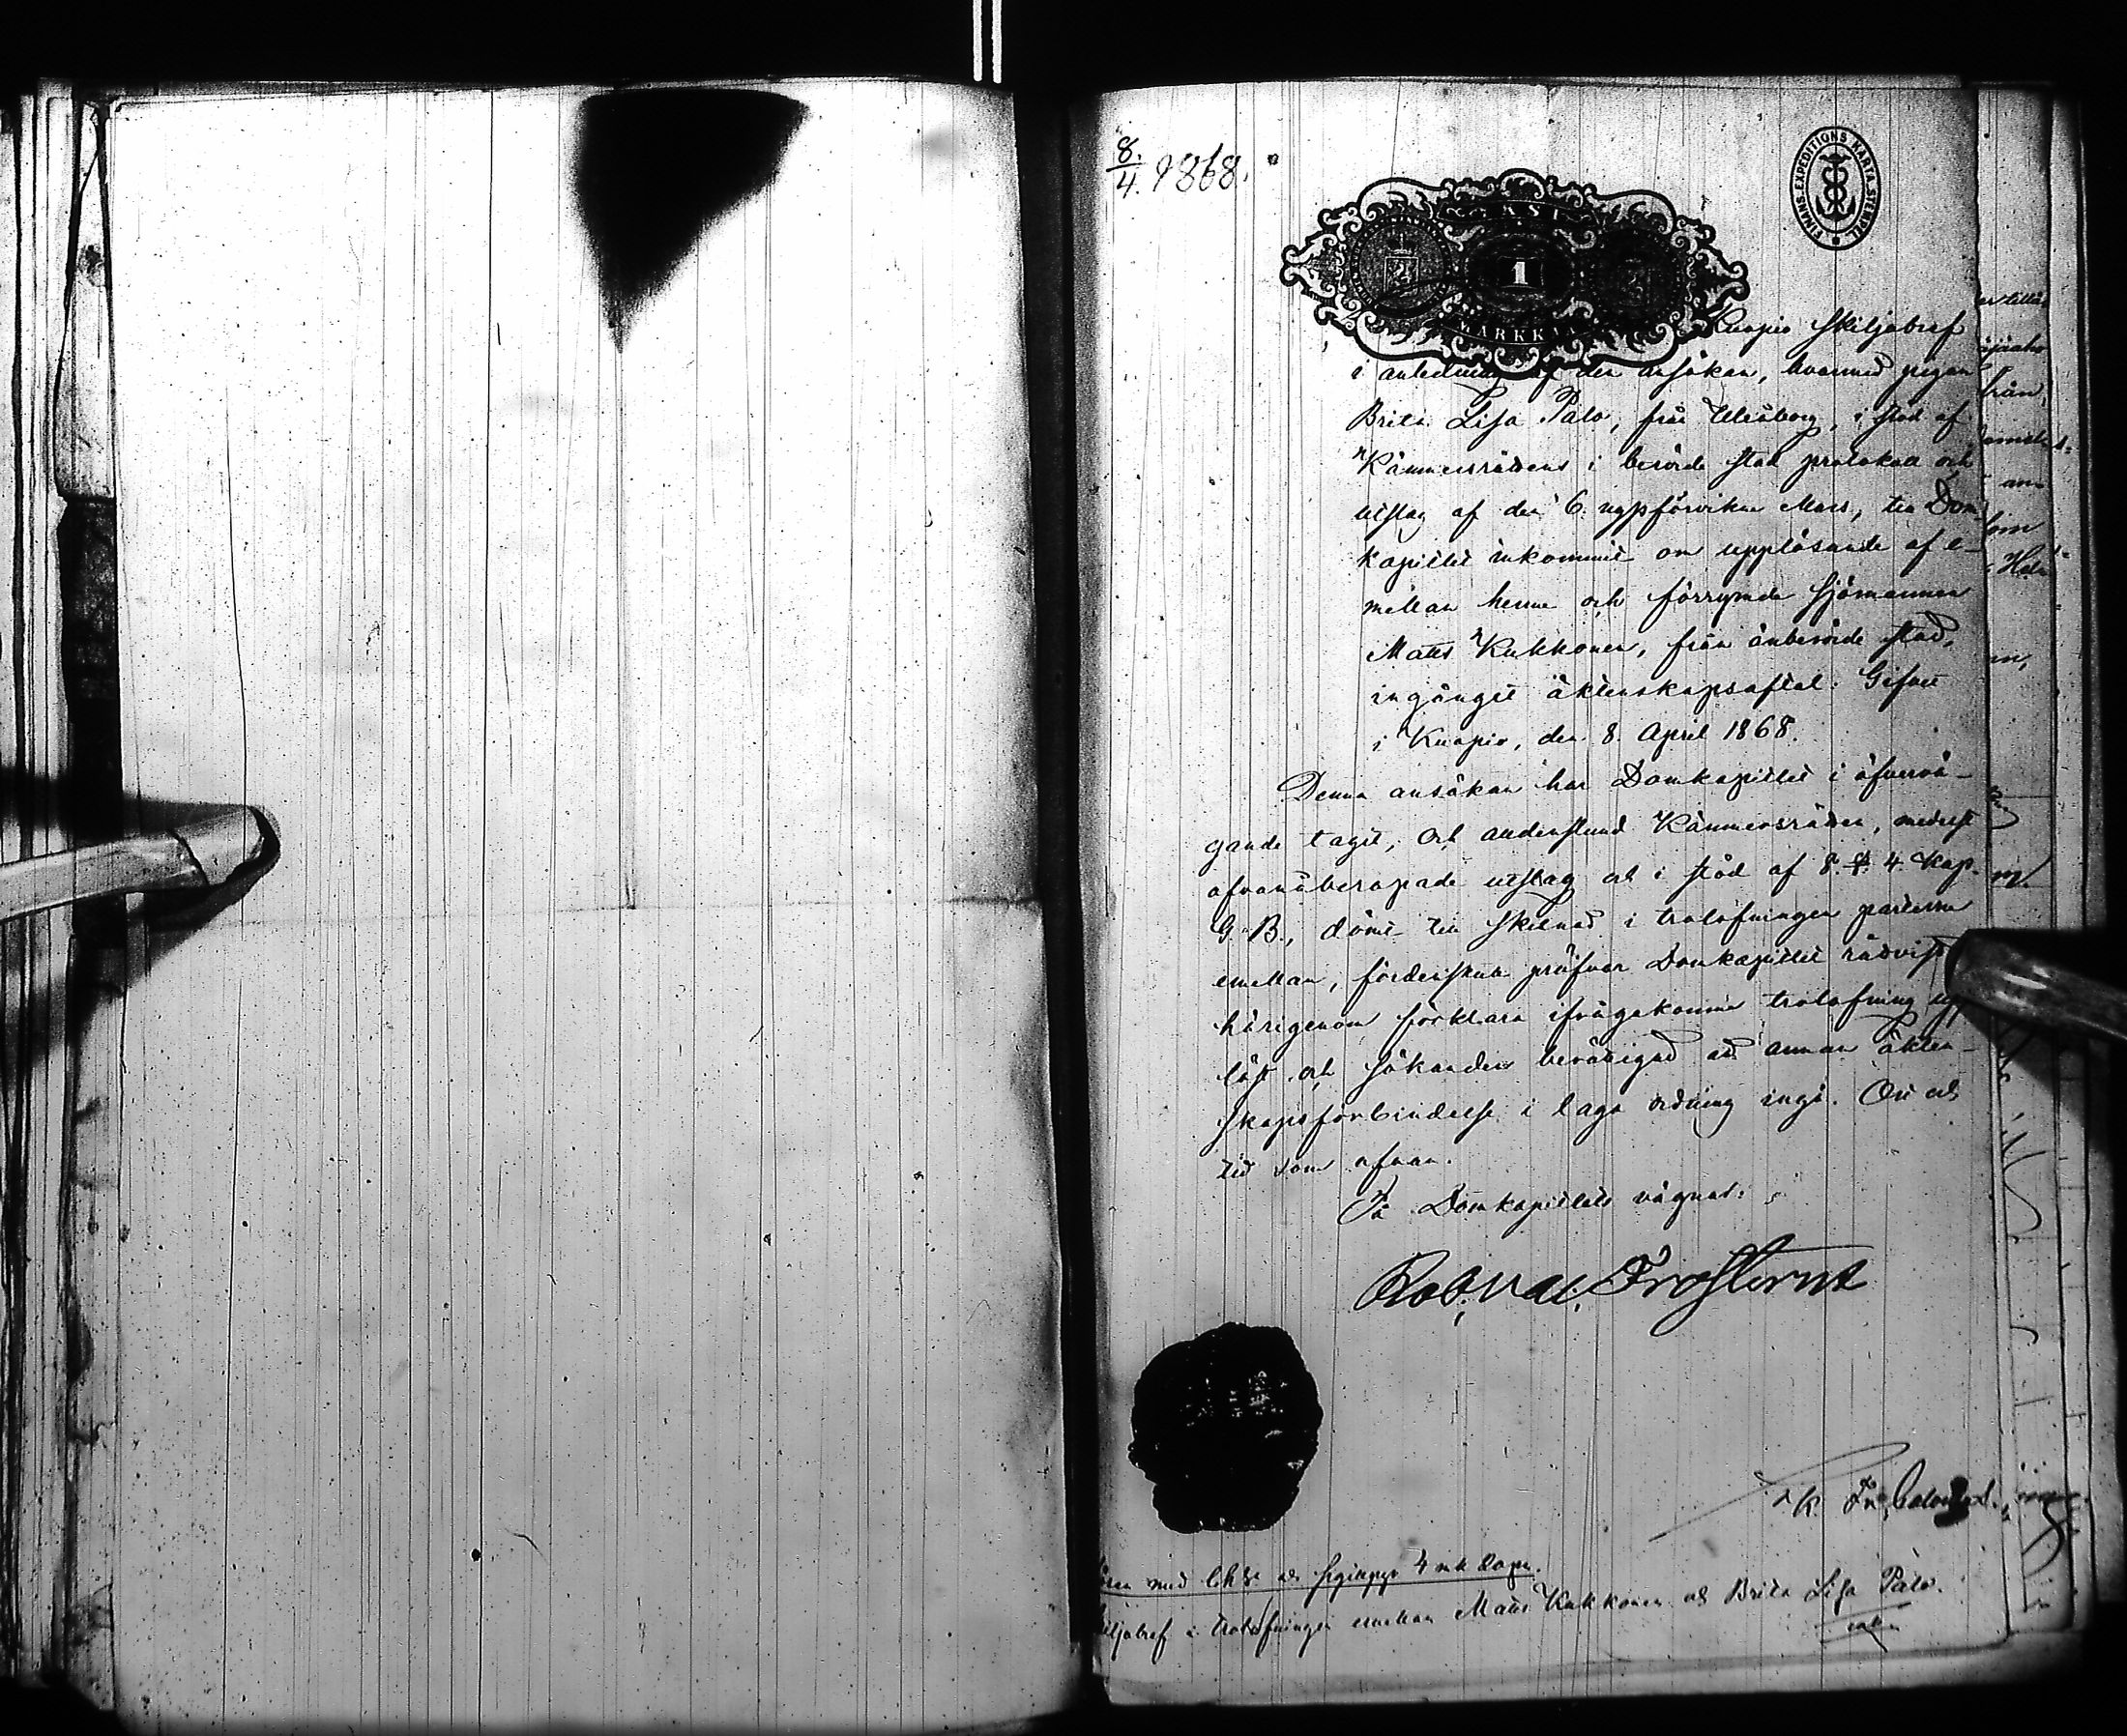 8./4. 1868.
FINANS-EXPEDITIONS KARTA STEMPEL
YKSI
1
MARKKAA
Kuopio Skiljobref
i anledning af den ansökan, hvarmed pigan
Brita Lisa Palo, från Uleåborg, i stöd af
Kämnersrättens i berörde stad protokoll och
utslag af den 6. nyssförvikne Mars, till Dom-
kapitlet inkommit om upplösande af e-
mellan henne och förrymde sjömannen
Matts Kukkonen, från änberörde stad,
ingånget äktenskapsaftal. Gifvet
i Kuopio, den 8. April 1868.
Denna ansökan har Domkapitlet i öfvervä-
gande tagit, och alldenstund Kämnersrätten, medelst
ofvanåberopade utslag och i stöd af 8. §. 4. Kap.
G. B., dömt till skilnad i trolofningen parterna
emellan, förderskull pröfvar Domkapitlet rådvist
härigenom förklara ifrågakomne trolofning upp-
löst och sökanden berättigad att annan äkten-
skapsförbindelse i laga ordning ingå. Ort och
tid som ofvan.
På Domkapitlets vägnar:
Rob. Val. Frosterus
med och 4 mk
Skiljobref i trolofningen emellan Matts Kukkonen och Brita Lisa Palo.